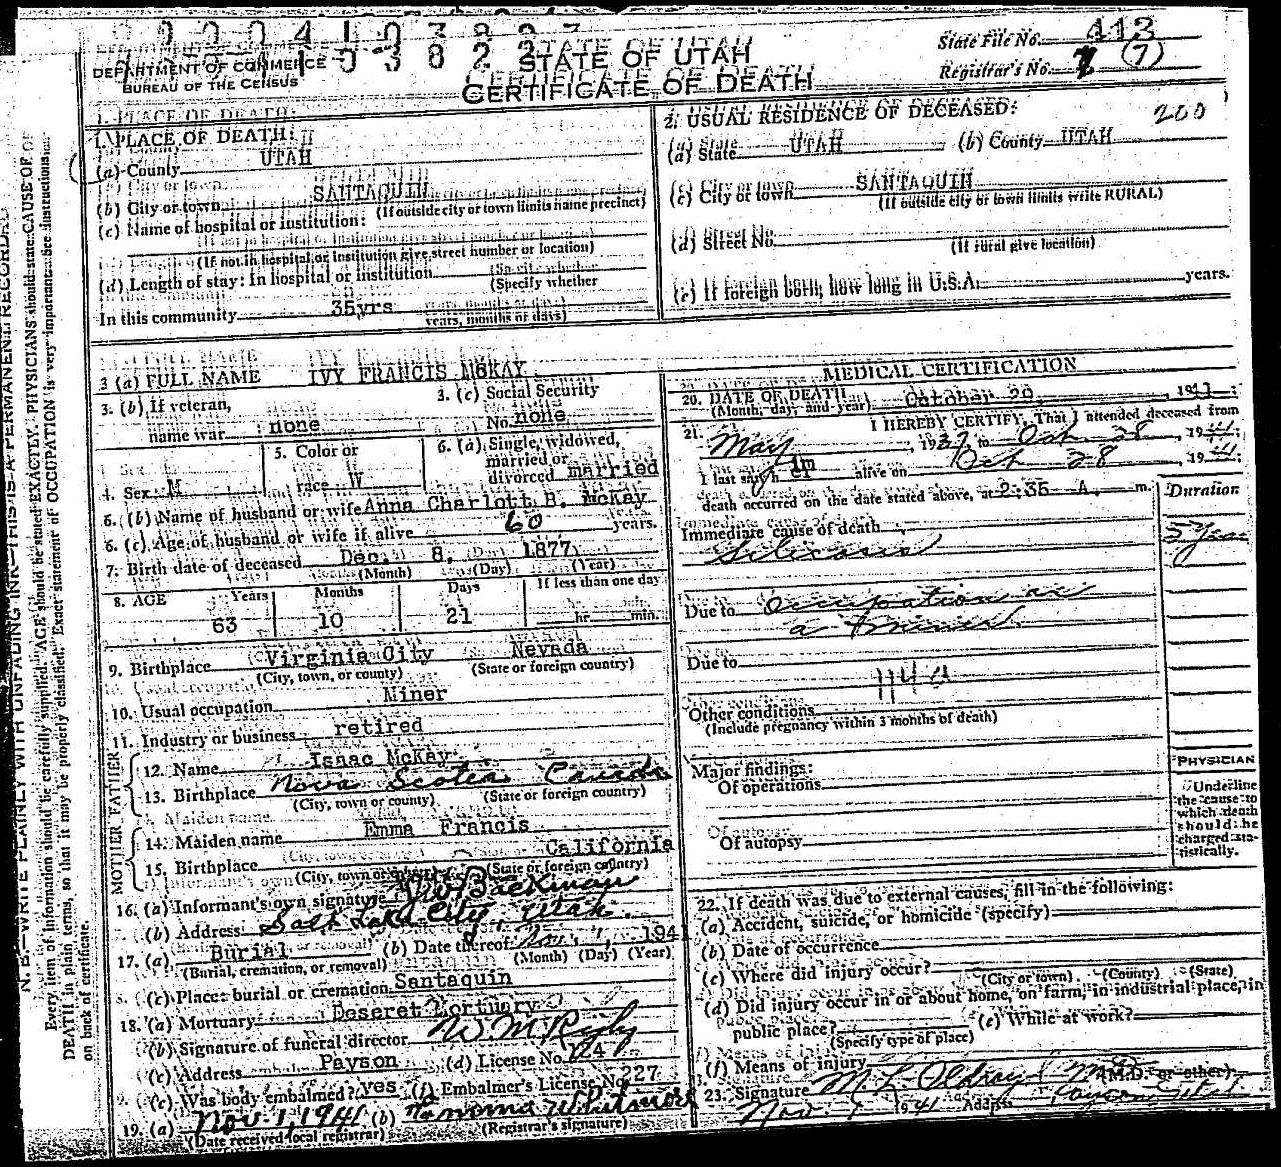 DEPARTMENT OF COMMERCE
BUREAU OF THE CENSUS
STATE OF UTAH
CERTIFICATE OF DEATH
State File No. 413
Registrar's No. 7 (7)
1. PLACE OF DEATH:
(a) County UTAH
(b) City or town SANTAQUIN
(If outside city or town limits name precinct)
(c) Name of hospital or institution:
(If not in hospital or institution give street number or location)
(d) Length of stay: In hospital or institution
(Specify whether
In this community 35yrs
years, months or days)
2. USUAL RESIDENCE OF DECEASED: 200
(a) State UTAH (b) County UTAH
(c) City or town SANTAQUIN
(If outside city or town limits write RURAL)
(d) Street No.
(If rural give location)
(e) If foreign born, how long in U.S.A. years.
3 (a) FULL NAME IVY FRANCIS McKAY
3. (b) If veteran,
name war none
3. (c) Social Security
No. none
4. Sex M
5. Color or
race W
6. (a) Single, widowed,
married or
divorced married
6. (b) Name of husband or wife Anna Charlott B. McKay
6. (c) Age of husband or wife if alive 60 years.
7. Birth date of deceased Dec. 8, 1877
(Month) (Day) (Year)
8. AGE Years Months Days If less than one day
63 10 21 hr. min.
9. Birthplace Virginia City Nevada
(City, town, or county) (State or foreign country)
10. Usual occupation Miner
11. Industry or business retired
FATHER
12. Name Isaac McKay
13. Birthplace Nova Scotia Canada
(City, town or county) (State or foreign country)
MOTHER
14. Maiden name Emma Francis
15. Birthplace California
(City, town or county) (State or foreign country)
16. (a) Informant's own signature Backman
(b) Address Salt Lake City, Utah.
17. (a) Burial (b) Date thereof Nov. 1, 1941
(Burial, cremation, or removal) (Month) (Day) (Year)
(c) Place: burial or cremation Santaquin
18. (a) Mortuary Deseret Mortuary
(b) Signature of funeral director
(c) Address Payson (d) License No.
(e) Was body embalmed? yes (f) Embalmer's License No. 227
19. (a) Nov. 1, 1941 (b) Whitmore
(Date received local registrar) (Registrar's signature)
MEDICAL CERTIFICATION
20. DATE OF DEATH October 29, 1941
(Month, day, and year)
21. I HEREBY CERTIFY, That I attended deceased from
May, 1937, to Oct 28, 1941;
I last saw him alive on Oct 28, 1941;
death occurred on the date stated above, at 2:35 A. m.
Duration
Immediate cause of death
Silicosis 5 Years
Due to Occupation as
a miner
Due to
114 a
Other conditions
(Include pregnancy within 3 months of death)
Major findings:
Of operations
Of autopsy
PHYSICIAN
Underline
the cause to
which death
should be
charged sta-
tistically.
22. If death was due to external causes, fill in the following:
(a) Accident, suicide, or homicide (specify)
(b) Date of occurrence
(c) Where did injury occur?
(City or town) (County) (State)
(d) Did injury occur in or about home, on farm, in industrial place, in
public place? (e) While at work?
(Specify type of place)
(f) Means of injury
23. Signature M. L. Oldroyd (M.D. or other)
Nov. 1 1941 Address Payson, Utah
N. B.—WRITE PLAINLY WITH UNFADING INK—THIS IS A PERMANENT RECORD.
Every item of information should be carefully supplied. AGE should be stated EXACTLY. PHYSICIANS should state CAUSE OF
DEATH in plain terms, so that it may be properly classified. Exact statement of OCCUPATION is very important. See instructions
on back of certificate.